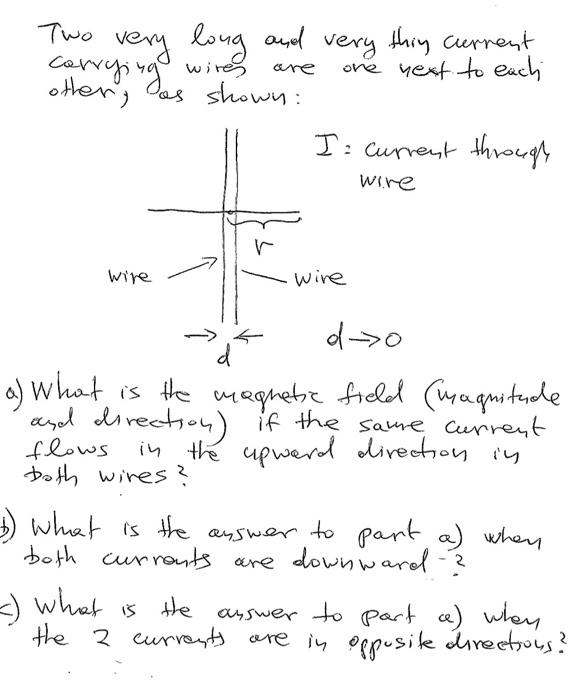 Two very long and very thin current
carrying wires are one next to each
other, as shown:
I: current through
wire
r
wire
wire
d
d→0
a) What is the magnetic field (magnitude
and direction) if the same current
flows in the upward direction in
both wires?
b) What is the answer to part a) when
both currents are downward?
c) What is the answer to part a) when
the 2 currents are in opposite directions?